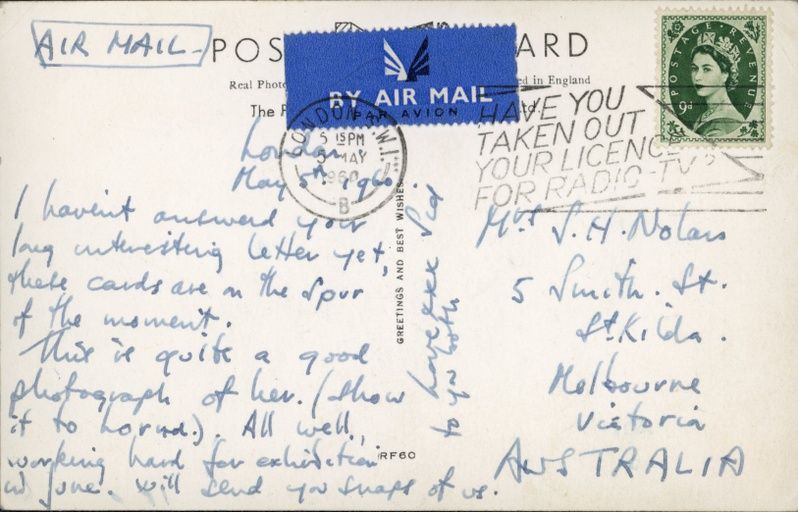 AIR MAIL
POS ARD
Real Photo ed in England
The
BY AIR MAIL
PAR AVION
LONDON S.W.1
5 15 PM
5 MAY
1960
B
HAVE YOU
TAKEN OUT
YOUR LICENCE
FOR RADIO-TV?
POSTAGE REVENUE
9d
London.
May 5th 1960.
I havent answerd your
long interesting letter yet,
these cards are on the spur
of the moment.
This is quite a good
photograph of her. (show
it to Lorna.). All well,
working hard for exhibition
in June. Will send you snaps of us.
GREETINGS AND BEST WISHES
RF60
Love xxx Sid
to you both
Mrs S. H. Nolan
5 Smith. St.
St. Kilda.
Melbourne
Victoria
AUSTRALIA